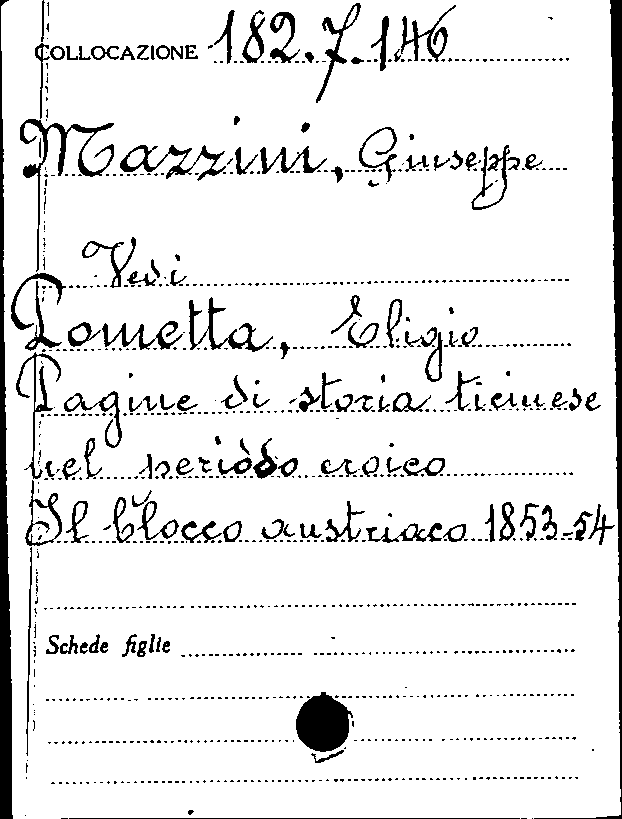 COLLOCAZIONE 182.7.146
Mazzini, Giuseppe
Vedi
Pometta, Eligio
Pagine di storia ticinese
nel periodo eroico
Il blocco austriaco 1853-54
Schede figlie